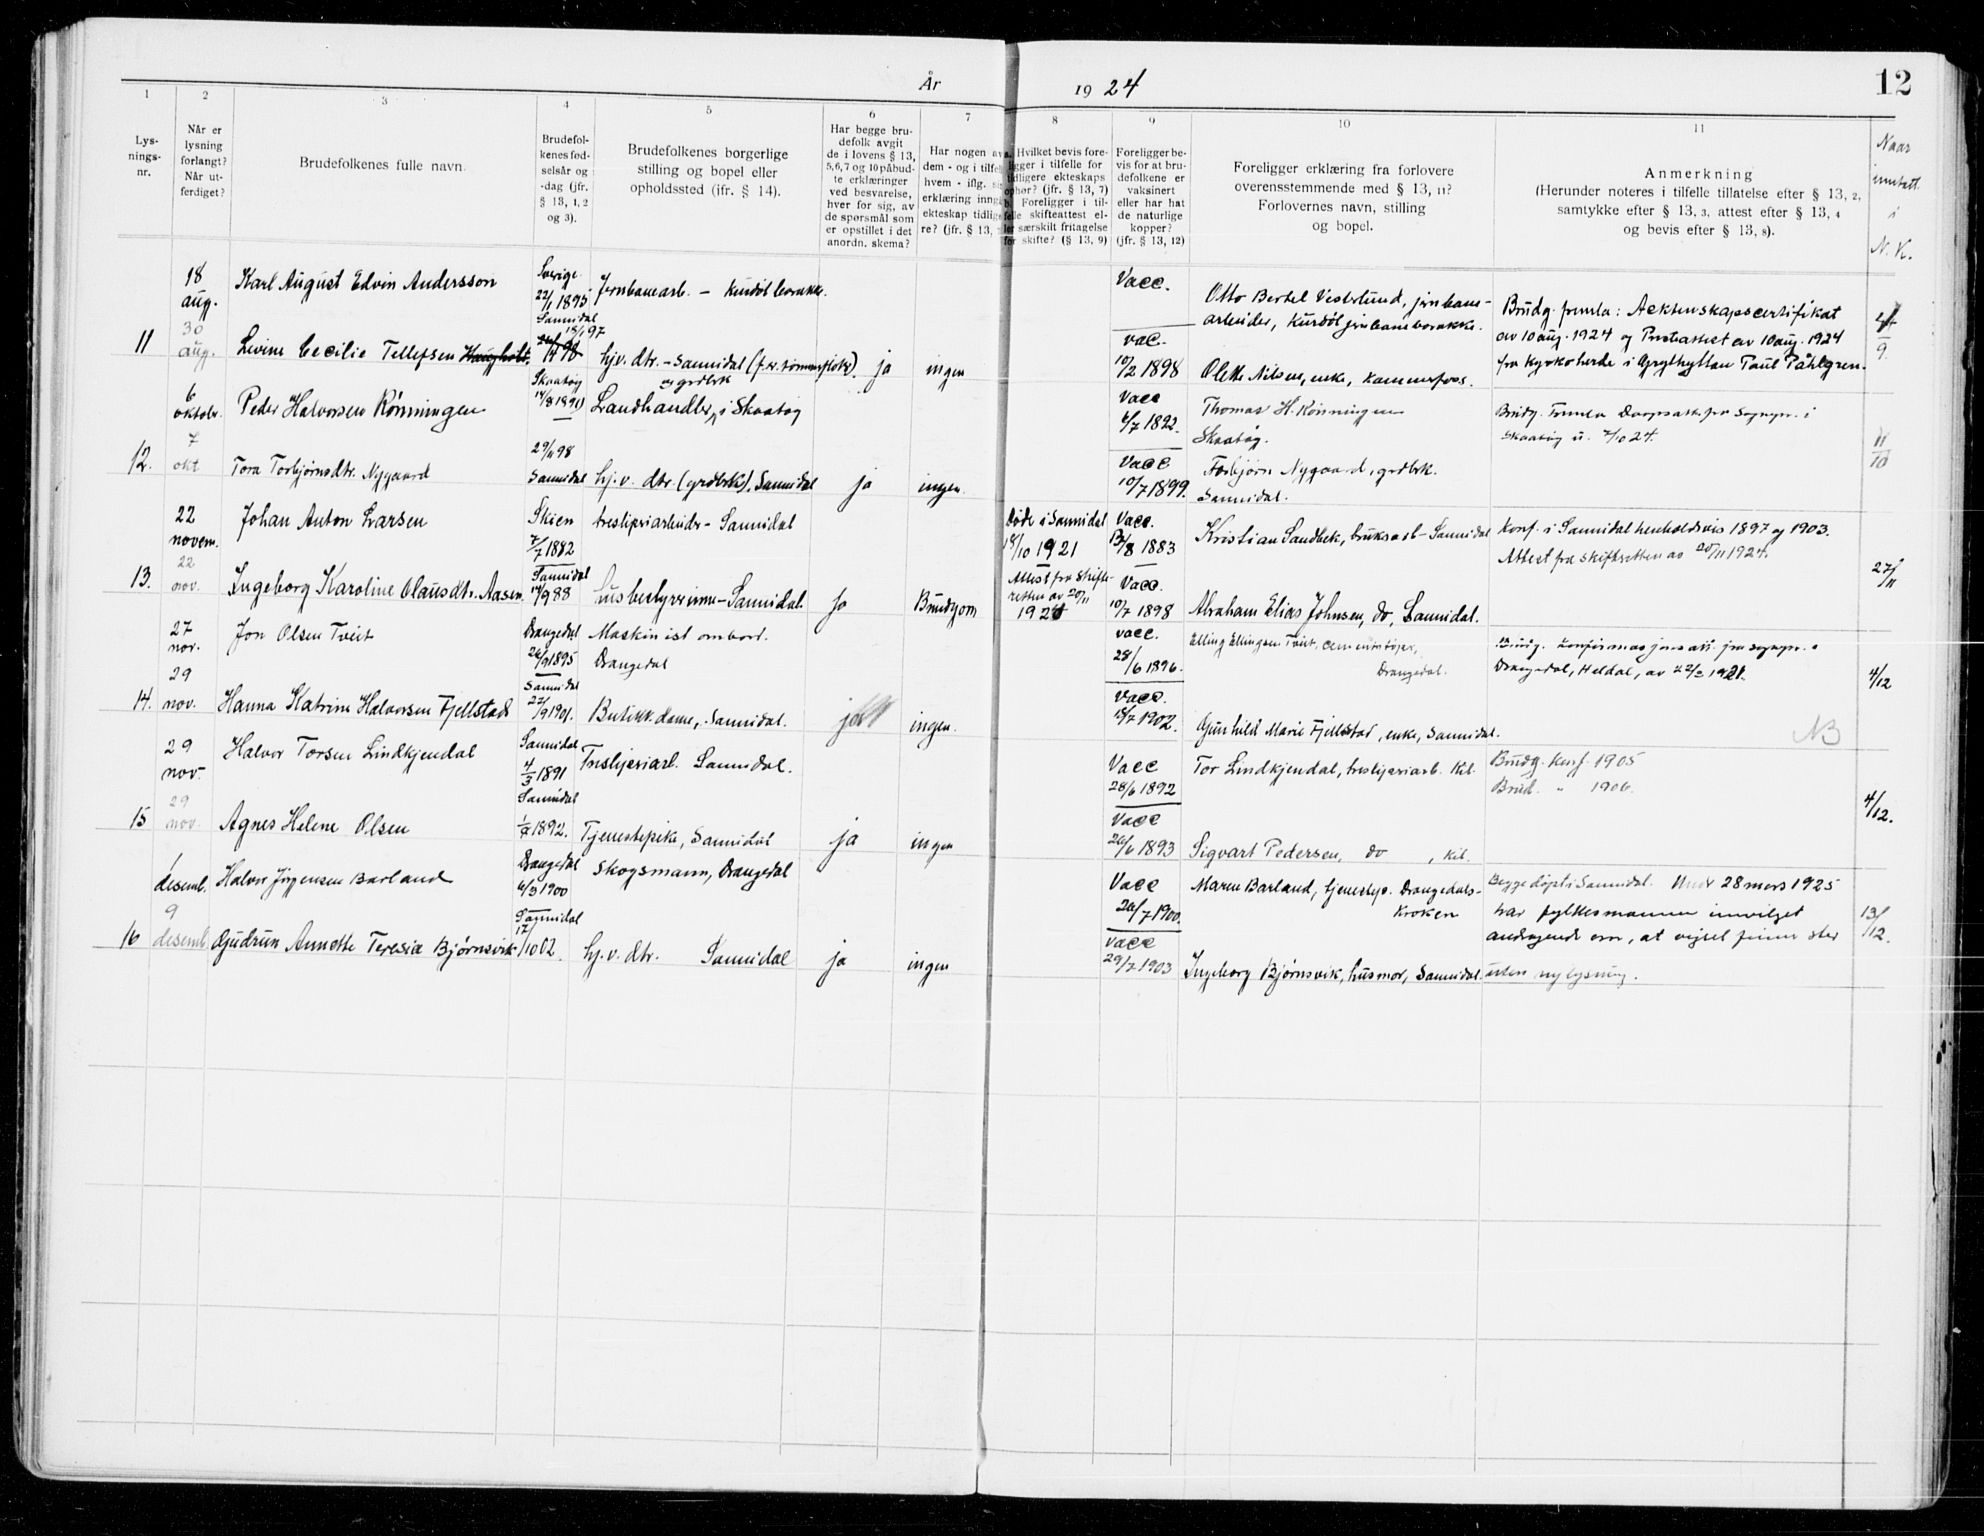 År 1924
12
1 2 3 4 5 6 7 8 9 10 11
Lys-
nings-
nr.
Når er
lysning
forlangt?
Når ut-
ferdiget?
Brudefolkenes fulle navn.
Brudefol-
kenes fød-
selsår og
-dag (jfr.
§ 13, 1, 2
og 3).
Brudefolkenes borgerlige
stilling og bopel eller
opholdssted (ifr. § 14).
Har begge bru-
defolk avgit
de i lovens § 13,
5, 6, 7 og 10 påbud-
te erklæringer
ved besvarelse,
hver for sig, av
de spørsmål som
er opstillet i det
anordn. skema?
Har nogen av
dem - og i tilfel
hvem - iflg. si
erklæring inng
ekteskap tidlige
re? (jfr. § 13,
a. Hvilket bevis fore-
ligger i tilfelle for
tidligere ekteskaps
ophør? (jfr. § 13, 7)
b. Foreligger i til-
felle skifteattest el-
ler særskilt fritagelse
for skifte? (§ 13, 9)
Foreligger be-
vis for at bru-
defolkene er
vaksinert
eller har hat
de naturlige
kopper?
(jfr. § 13, 12)
Foreligger erklæring fra forlovere
overensstemmende med § 13, 11?
Forlovernes navn, stilling
og bopel.
Anmerkning
(Herunder noteres i tilfelle tillatelse efter § 13, 2,
samtykke efter § 13, 3, attest efter § 13, 4
og bevis efter § 13, 8).
Naar
i
N. K.
18 aug. Karl August Edvin Andersson Sverige 22/1 1895 Jernbanearb. - Kurdöl barakke. Vacc.
Otto Bertel Vesterlund, jernbane-
arbeider, Kurdöl jernbanebarakke.
Brudg. fremla: Acktenskapscertifikat
av 10 aug. 1924 og Prestattest av 10 aug. 1924
fra Kyrkoherde i Grythyttan Paul Påhlgren.
11 30 aug. Levine Cecilie Tellefsen Haugholt. Sannidal 18/1 97 hjv. dtr. - Sannidal (f. v. tømmerfløter). ja ingen vac. 10/2 1898 Olette Nilsen, enke, Kammerfoss. 4/9
6 oktobr. Peder Halvorsen Rønningen Skaatøy 14/8 1891 Landhandler og grdbrk i Skaatøy Vacc 6/7 1892. Thomas H. Rønningen
Skaatøy.
Brudg. fremla Daapsatt. fra sognepr. i
Skaatøy u. 2/10 24.
12. 7 okt Tora Torbjørnsdtr. Nygaard 29/4 98 Sannidal hj. v. dtr. (grdbrk). Sannidal ja ingen. Vacc 10/7 1899. Torbjørn Nygaard, grdbrk.
Sannidal.
11/10
22 novem. Johan Anton Larsen Skien 7/7 1882 tresliperiarbeider - Sannidal Døde i Sannidal 18/10 1921 Vacc. 13/8 1883 Kristian Sandbek, bruksarb - Sannidal
Konf. i Sannidal henholdsvis 1897 og 1903.
Attest fra skifteretten av 20/11 1924.
13. 22 nov. Ingeborg Karoline Olausdtr. Aasen. Sannidal 14/9 88 husbestyrerinne - Sannidal. Ja Brudgom Attest fra skifte-
retten av 20/11
1924 Vacc. 10/7 1898 Abraham Elias Johnsen, do, Sannidal. 27/11
27 nov. Jon Olsen Tveit Drangedal 26/9 1895 Maskinist ombord. Drangedal vacc. 28/6 1896. Elling Ellingsen Tveit, cementstøper,
Drangedal.
Brudg. konfirmasjonsatt. fra sognepr. i
Drangedal, Heldal, av 22/3 1921.
14. 29 nov. Hanna Katrine Halvorsen Fjellstad Sannidal 27/9 1901. Butikkdame, Sannidal. ja ingen. Vacc. 18/7 1902. Gunhild Marie Fjellstad, enke, Sannidal. 4/12
NB
29 nov. Halvor Torsen Lindkjendal Sannidal 4/3 1891 Tresliperiarb. Sannidal. Vacc 28/6 1892 Tor Lindkjendal, tresliperiarb. Kil.
Brudg. konf. 1905
Brud. " 1906.
15 29 nov. Agnes Helene Olsen Sannidal 1/7 1892. Tjenestepike, Sannidal ja ingen Vacc 26/6 1893 Sigvart Pedersen, do, Kil. 4/12.
1 desemb. Halvor Jørgensen Barland Drangedal 6/3 1900 Skogsmann, Drangedal Vacc 26/7 1900. Maren Barland, tjenestep. Drangedals-
kroken
Begge døpt i Sannidal. Under 28 mars 1925
har fylkesmannen innvilget
andragende om, at vigsel finner sted
uten ny lysning.
16 9 desemb. Gudrun Annette Teresia Bjørnsvik Sannidal 17/10 02. hj. v. dtr. Sannidal ja ingen Vacc 29/7 1903 Ingeborg Bjørnsvik, husmor, Sannidal. 13/12.